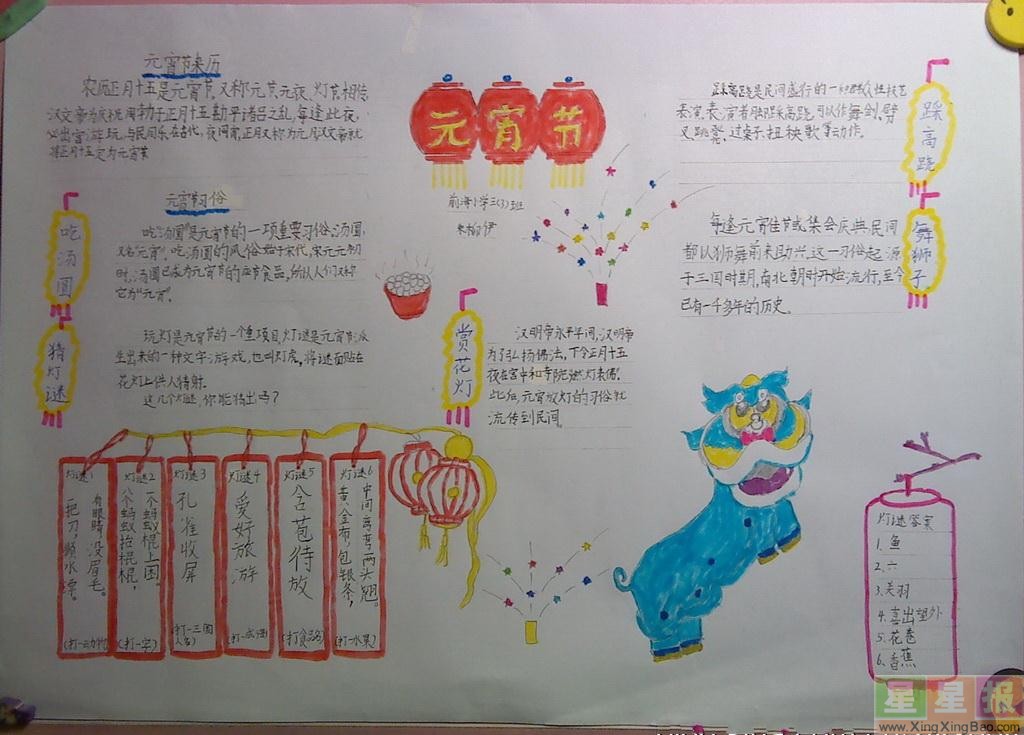 元宵节来历
农历正月十五是元宵节,又称元节,元夜,灯节相传
汉文帝为庆祝周勃于正月十五勘平诸吕之乱,每逢此夜,
必出宫游玩,与民同乐在古代,夜同宵,正月又称为元月汉文帝就
将正月十五定为元宵节
元宵节
前 小学三(3)班
踩高跷是民间盛行的一种群众性技艺
表演,表演者脚踩高跷,可以作舞剑、劈
叉、跳凳、过桌子、扭秧歌等动作。
踩高跷
元宵习俗
吃汤圆
吃“汤圆”是元宵节的一项重要习俗,汤圆,
又名“元宵”,吃汤圆的风俗始于宋代,宋元元初
时,汤圆已成为元宵节的应节食品,所以人们又称
它为“元宵”。
每逢元宵佳节或集会庆典,民间
都以狮舞前来助兴,这一习俗起源
于三国时期,南北朝时开始流行,至今
已有一千多年的历史。
舞狮子
猜灯谜
玩灯是元宵节的一个重项目,灯谜是元宵节派
生出来的一种文字游戏,也叫灯虎,将谜面贴在
花灯上供人猜射.
这几个灯谜,你能猜出吗?
赏花灯
汉明帝永平年间,汉明帝
为了弘扬佛法,下令正月十五
夜在宫中和寺院“燃灯表佛”.
此后,元宵放灯的习俗就
流传到民间.
灯谜1
有眼睛没眉毛。
一把刀,顺水漂。
灯谜2
一个蚂蚁棍上困。
八个蚂蚁抬棍棍,
(打一字)
灯谜3
孔雀收屏
(打一三国
人名)
灯谜4
爱好旅游
(打一成语)
灯谜5
含苞待放
(打食品名)
灯谜6
中间弯弯两头翘。
黄金布,包银条,
(打一水果)
灯谜答案
1.鱼
2.六
3.关羽
4.喜出望外
5.花卷
6.香蕉
星星报
www.XingXingBao.com